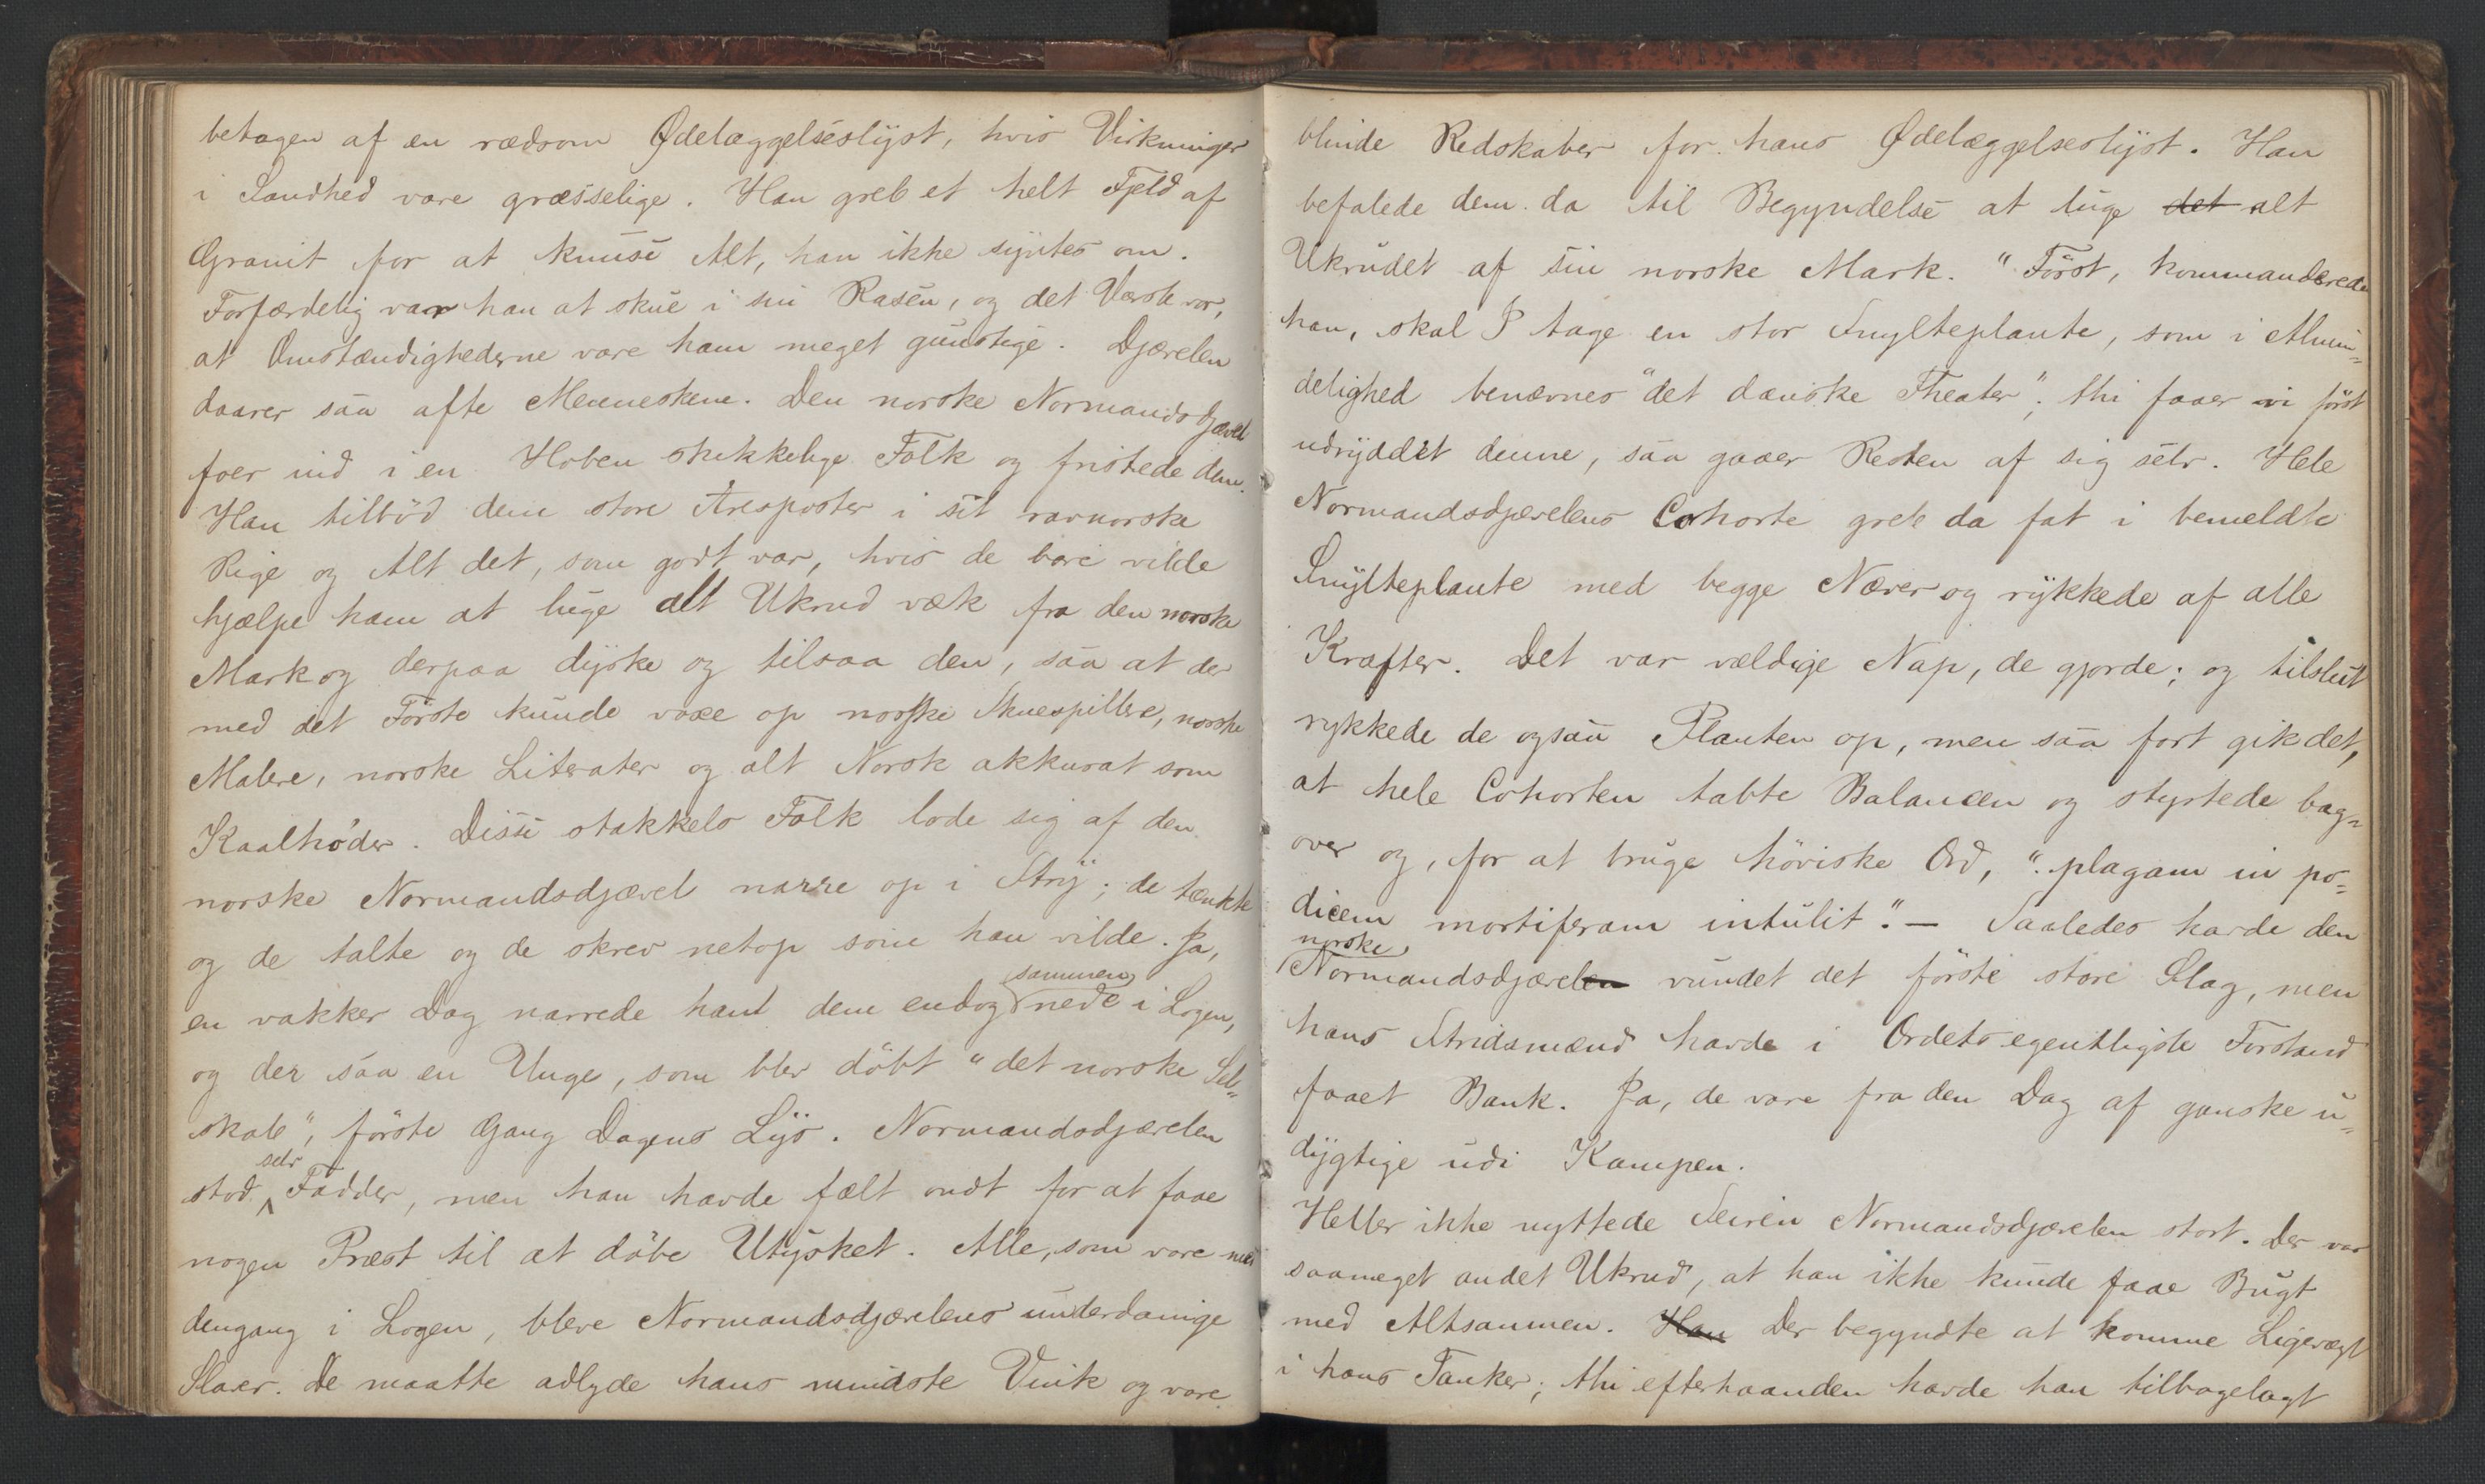 betagen af en rædsom Ødelæggelseslyst, hvis Virkninger
i Sandhed vare græsselige. Han greb et helt Fjeld af
Granit for at knuse Alt, han ikke syntes om.
Forfærdelig var han at skue i sin Rasen, og det Værste var,
at Omstændighederne vare ham meget gunstige. Djævelen
daarer saa ofte Menneskene. Den norske Normandsdjævel
foer ind i en Hoben skikkelige Folk og fristede dem.
Han tilbød dem store Æresposter i sit ravnorske
Rige og Alt det, som godt var, hvis de bare vilde
hjælpe ham at luge alt Ukrud væk fra den norske
Mark og derpaa dyrke og tilsaa den, saa at der
med det Første kunde voxe op norske Skuespillere, norske
Malere, norske Literater og alt Norsk akkurat som
Kaalhøder. Disse stakkels Folk lode sig af den
norske Normandsdjævel narre op i Stry; de tænkte
og de talte og de skrev netop som han vilde. Ja,
en vakker Dag narrede han dem endog sammen nede i Logen,
og der saa en Unge, som blev döbt "det norske Sel=
skab", förste Gang Dagens Lys. Normandsdjævelen
stod selv Fadder, men han havde fælt ondt for at faae
nogen Præst til at døbe Utysket. Alle, som vare med
dengang i Logen, bleve Normandsdjævelens underdanige
Slaver. De maatte adlyde hans mindste Vink og vare
blinde Redskaber for hans Ødelæggelseslyst. Han
befalede dem da til Begyndelse at luge det alt
Ukrudet af sin norske Mark. "Först, kommanderede
han, skal I tage en stor Snylteplante, som i Almin=
delighed benævnes "det danske Theater"; thi faaer vi först
udryddet denne, saa gaaer Resten af sig selv. Hele
Normandsdjævelens Cohorte greb da fat i bemeldte
Snylteplante med begge Næver og rykkede af alle
Kræfter. Det var vældige Nap, de gjorde; og tilslut
rykkede de ogsaa Planten op, men saa fort gik det,
at hele Cohorten tabte Balancen og styrtede bag=
over og, for at bruge höviske Ord, "plagam in po=
dicem mortiferam intulit". — Saaledes havde den
norske
Normandsdjævelen vundet det förste store Slag, men
hans Stridsmænd havde i Ordets egentligste Forstand
faaet Bank. Ja, de vare fra den Dag af ganske u=
dygtige udi Kampen.
Heller ikke nyttede Seiren Normandsdjævelen stort. Der var
saameget andet Ukrud, at han ikke kunde faae Bugt
med Altsammen. Han Der begyndte at komme Ligevægt
i hans Tanker; thi efterhaanden havde han tilbagelagt